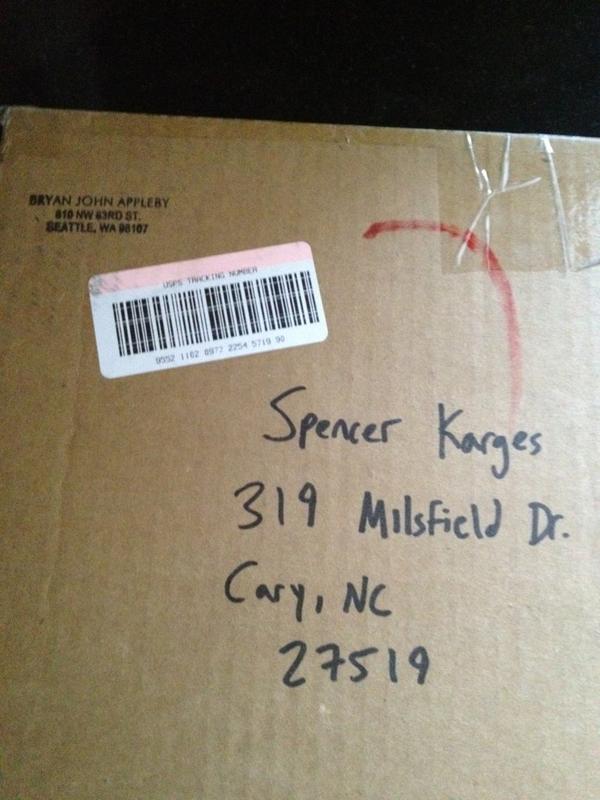 BRYAN JOHN APPLEBY
810 NW 63RD ST.
SEATTLE, WA 98107
USPS TRACKING NUMBER
9552 1102 8977 2254 5719 90
Spencer Karges
319 Milsfield Dr.
Cary, NC
27519